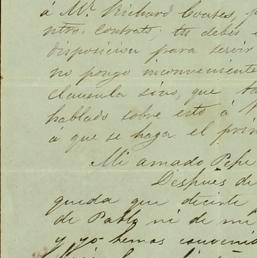 á Mr. Richard Coates, p
ntro. contrato, tu debes
disposicion para servir
no pongo inconveniente
clausula sino, que
hablado sobre esto á
á que se haga el prim
Mi amado Pepe
Despues de
queda que decirte
de Pablo ni de mi
y yo hemos convenid